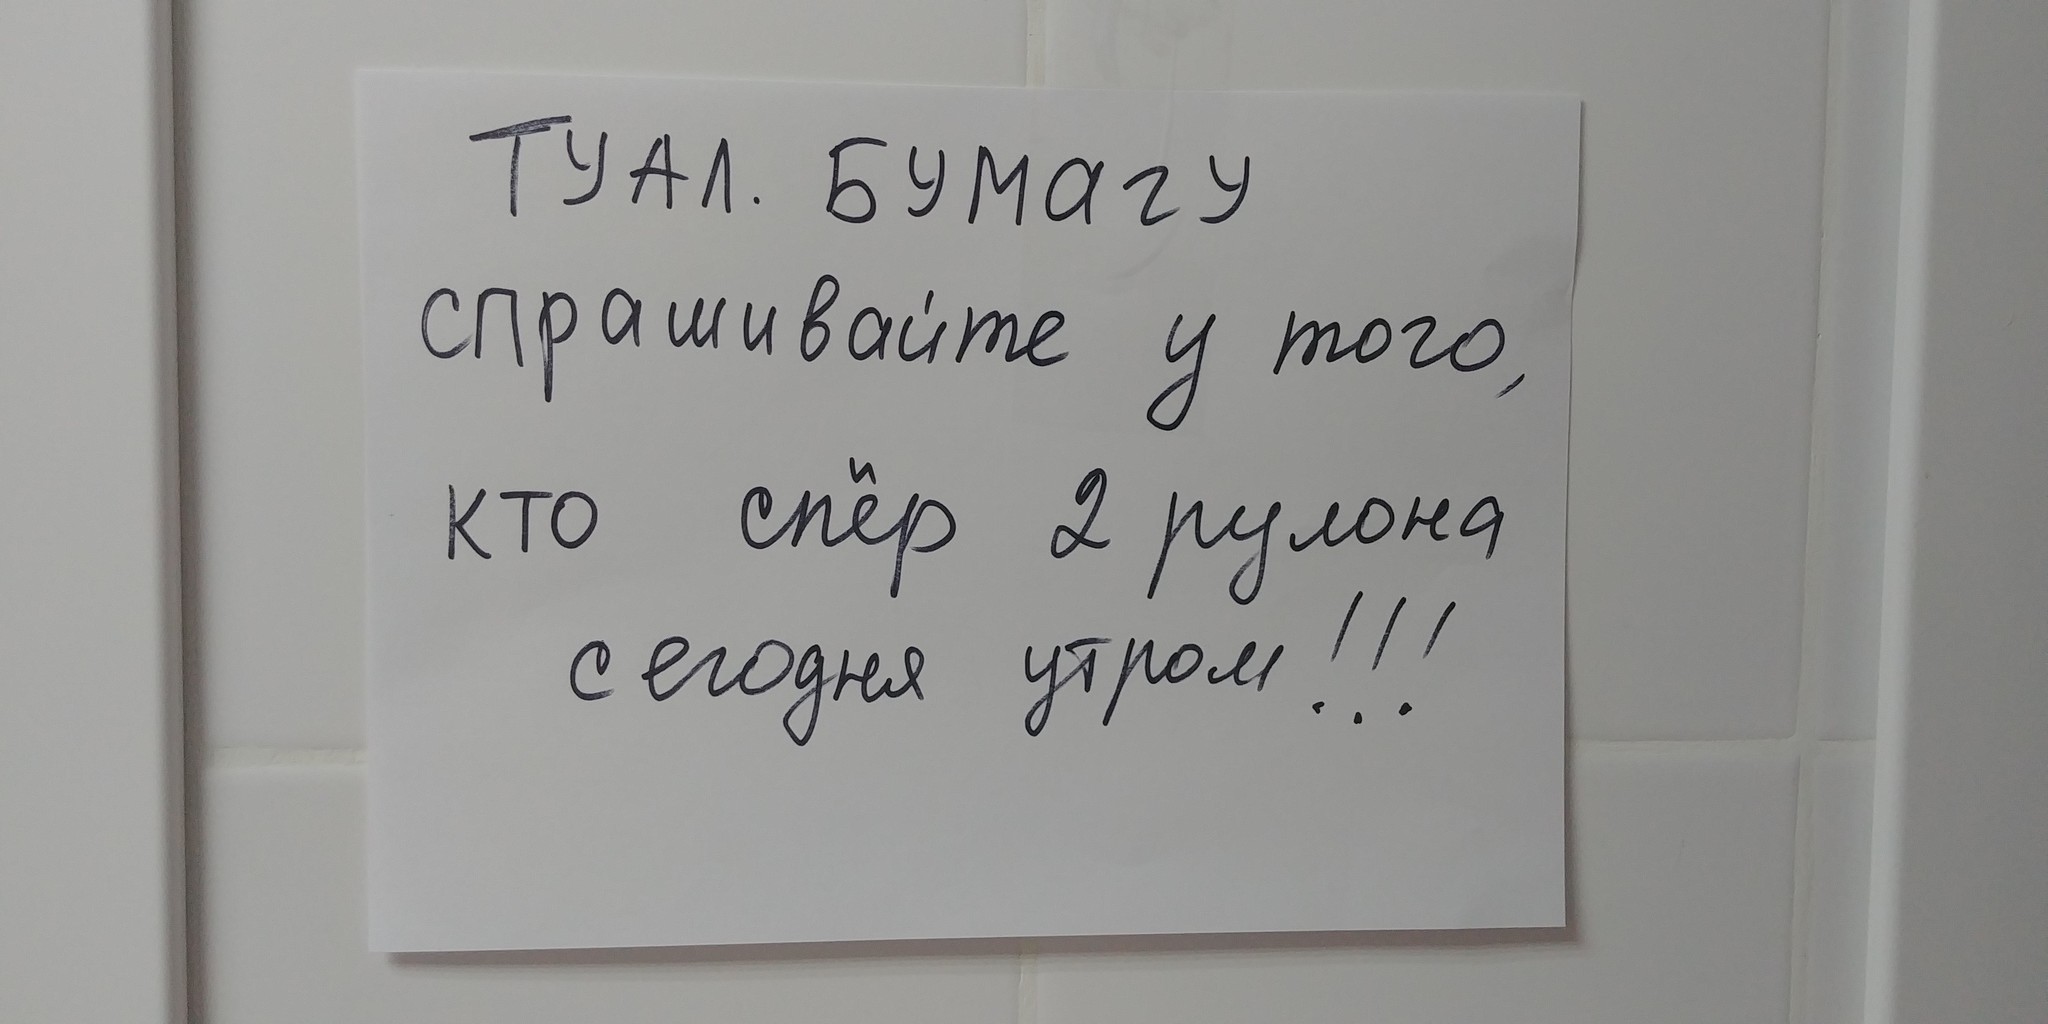 ТУАЛ. БУМАГУ
спрашивайте у того,
кто спёр 2 рулона
сегодня утром!!!